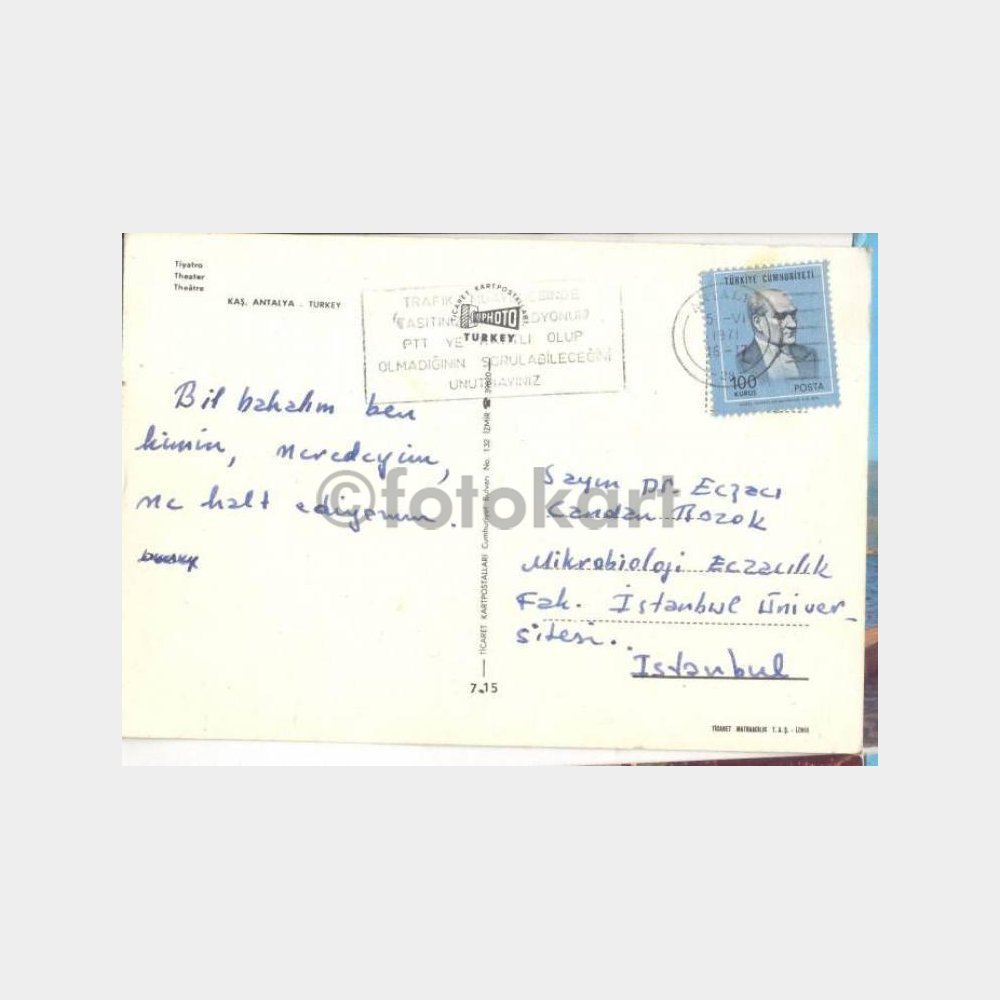 Tiyatro
Theater
Theâtre
KAŞ. ANTALYA - TURKEY
TİCARET KARTPOSTALLARI
PHOTO
TURKEY
TRAFİK
PTT YE OLUP
OLMADIĞININ SORULABİLECEĞİNİ
UNUTMAYINIZ
TÜRKİYE CUMHURİYETİ
1971
100
KURUŞ
POSTA
Bil bakalım ben
kimim, neredeyim,
ne halt ediyorum.
©fotokart
Sayın Dr. Eczacı
Candan Bozok
Mikrobioloji Eczacılık
Fak. İstanbul Üniver-
sitesi..
İstanbul
TİCARET KARTPOSTALLARI Cumhuriyet Bulvarı No. 132 İZMİR
7.15
TİCARET MATBAACILIK T.A.Ş. - İZMİR